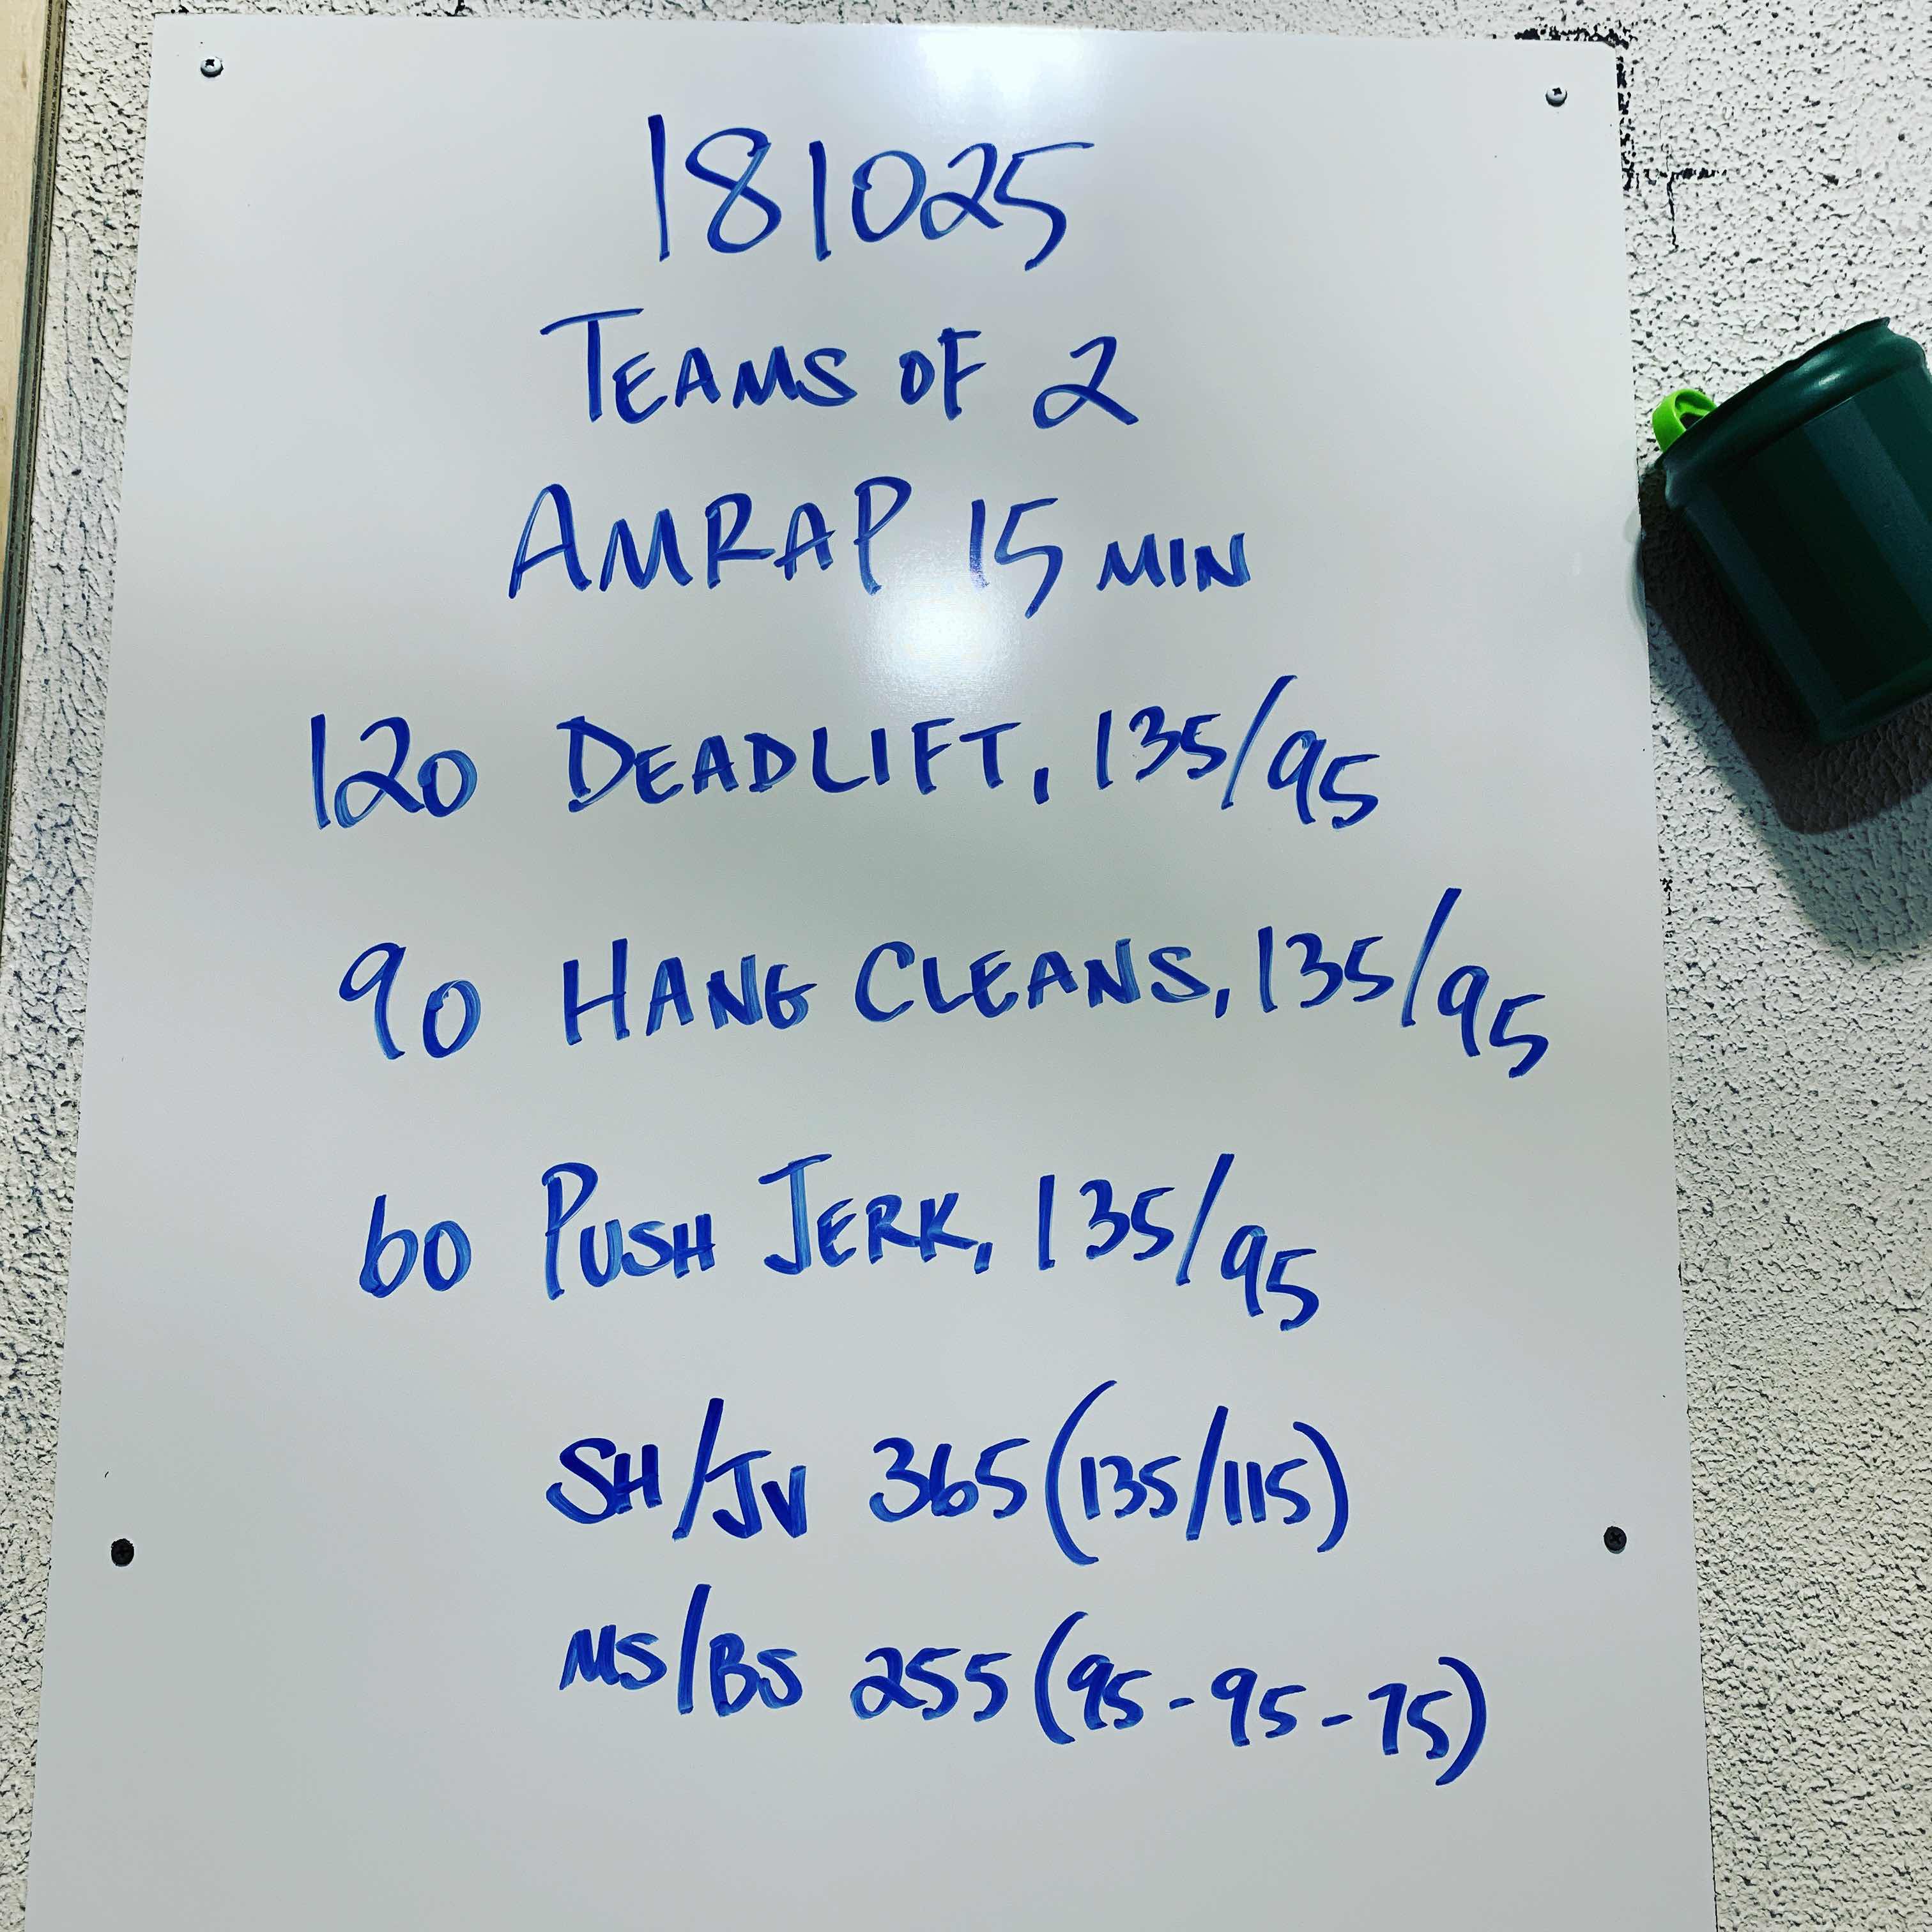 181025
TEAMS OF 2
AMRAP 15 MIN
120 DEADLIFT, 135/95
90 HANG CLEANS, 135/95
60 PUSH JERK, 135/95
SH/JV 365 (135/115)
MS/BS 255 (95-95-75)